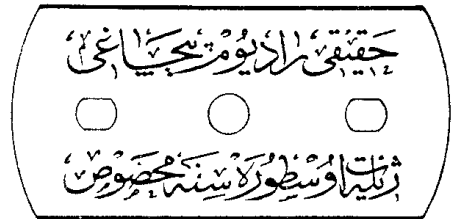 حقيقى راديوم بيچاغى
ژيليت اوسطوره سنه مخصوص